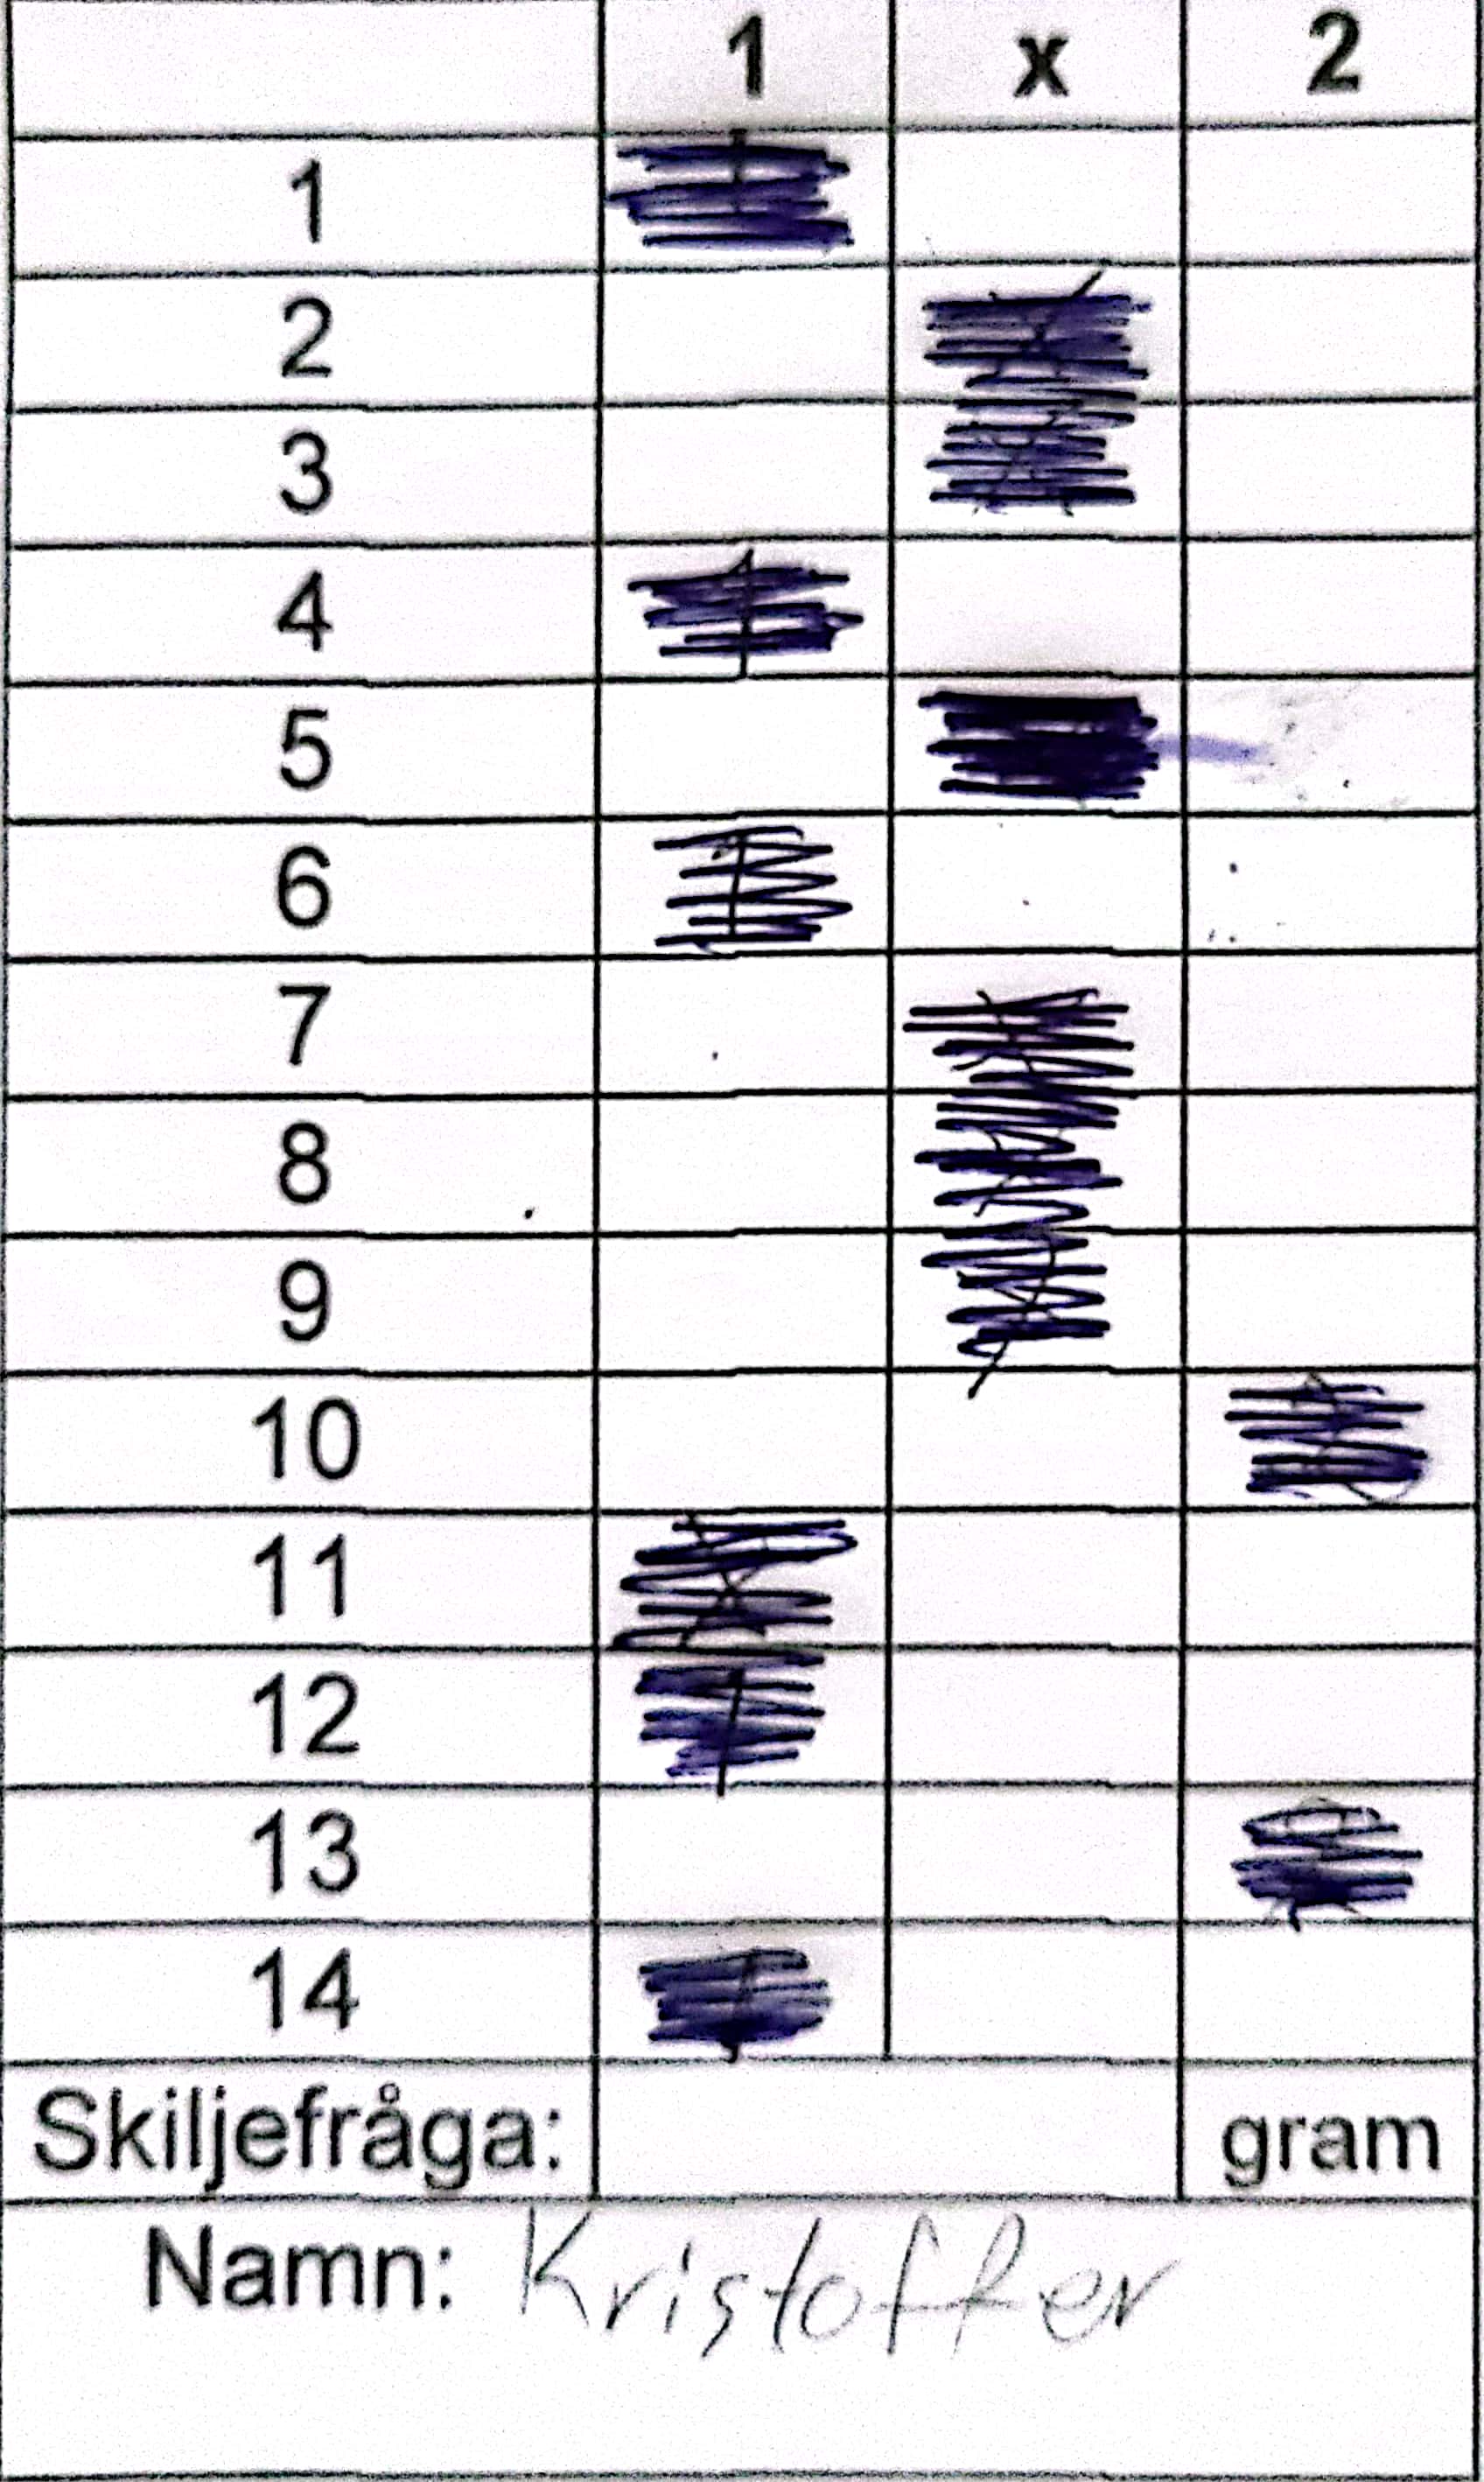 1 x 2
1
2
3
4
5
6
7
8
9
10
11
12
13
14
Skiljefråga: gram
Namn: Kristoffer